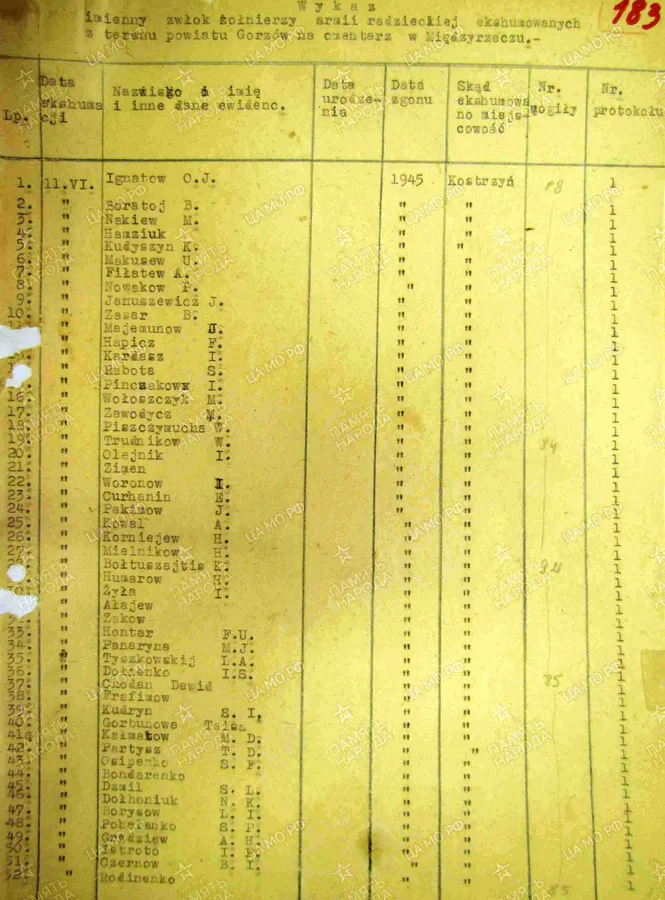 183
Wykaz
imienny zwłok żołnierzy armii radzieckiej ekshumowanych
z terenu powiatu Gorzów na cmentarz w Międzyrzeczu.-
Lp. Data ekshuma cji Nazwisko i imię i inne dane ewidenc. Data urodze- nia Data zgonu Skąd ekshumowa no miejs- cowość Nr. mogiły Nr. protokołu
1. 11.VI. Ignatow O.J. 1945 Kostrzyń 88 1
2. " Boratoj B. " " 1
3. " Nakiew M. " " 1
4. " Hamziuk " " 1
5. " Kudyszyn K. " " 1
6. " Makusew U. " " 1
7. " Fiłatew A. " " 1
8. " Nowakow P. " " 1
9. " Januszewicz J. " " 1
10. " Zasar B. " " 1
" Majemunow J. " " 1
" Hapicz F. " " 1
" Kardasz I. " " 1
" Rabota S. " " 1
" Pinczakow I. " " 1
16. " Wołoszczyk M. " " 1
17. " Zawodycz M. " " 1
18. " Piszczymucha W. " " 1
19. " Trudnikow W. " " 84 1
20. " Olejnik I. " " 1
21. " Zimen " " 1
22. " Woronow I. " " 1
23. " Curhanin E. " " 1
24. " Pakimow J. " " 1
25. " Kowal A. " " 1
26. " Korniejew H. " " 1
27. " Mielnikow H. " " 1
" Bołtuszajtis K. " " 94 1
" Humarow H. " " 1
30. " Żyła I. " " 1
" Ałajew " " 1
" Żakow " " 1
33. " Hontar F.U. " " 1
34. " Panaryna M.J. " " 1
35. " Tyszkowskij L.A. " " 1
36. " Dołnenko I.S. " " 1
37. " Chodan Dawid " " 85 1
38. " Frafimow " " 1
39. " Kudryn S. I. " " 1
40. " Gorbunowa Taisa " " 1
41. " Kałmatow M. D. " " 1
42. " Partysz T. D. " " 1
43. " Osipenko S. F. " " 1
44. " Bondarenko " " 1
45. " Dzmil S. L. " " 1
46. " Dołhoniuk N. K. " " 1
47. " Borysow L. I. " " 1
48. " S. P. " " 1
49. " Gradziew A. H. " " 1
" I. E. " " 1
51. " Czernow B. I. " " 1
52. " Rodinenko " " 85 1
ПАМЯТЬ НАРОДА
ЦА МО РФ